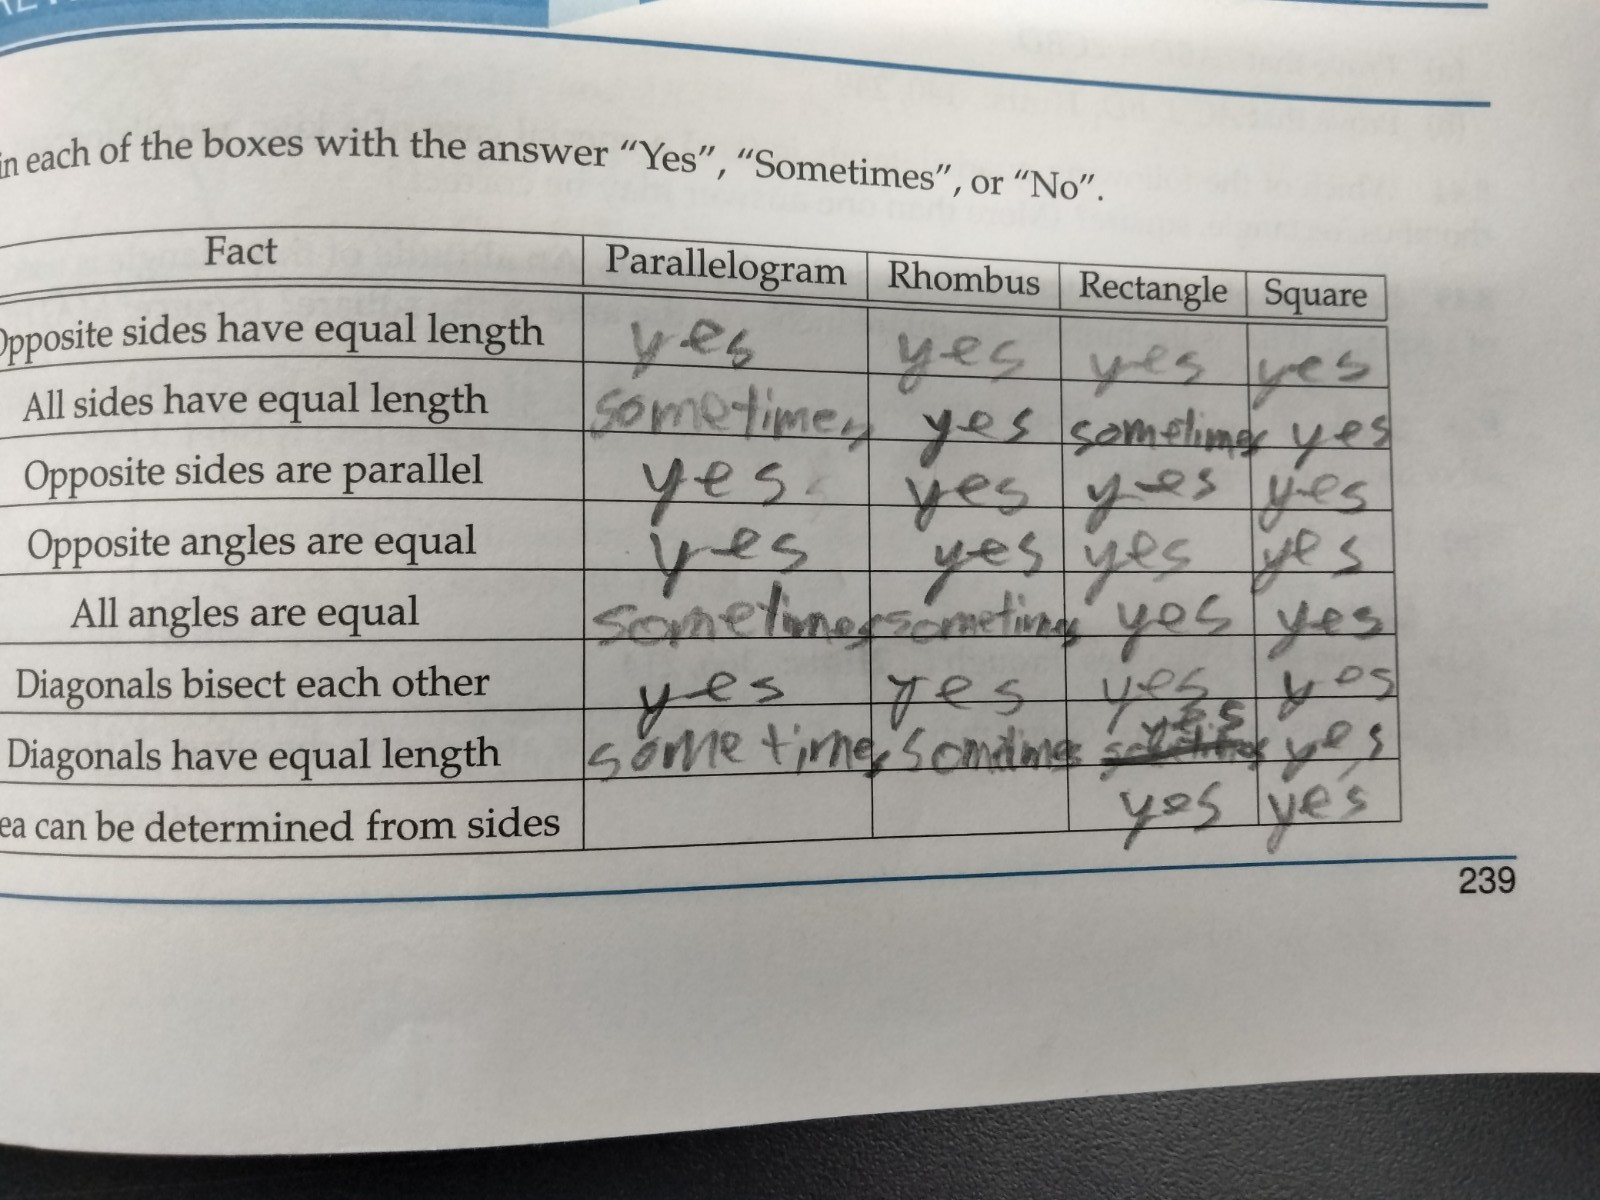 in each of the boxes with the answer "Yes", "Sometimes", or "No".
Fact Parallelogram Rhombus Rectangle Square
Opposite sides have equal length yes yes yes yes
All sides have equal length sometimes yes sometimes yes
Opposite sides are parallel yes yes yes yes
Opposite angles are equal yes yes yes yes
All angles are equal sometimes sometimes yes yes
Diagonals bisect each other yes yes yes yes
Diagonals have equal length sometimes sometimes yes yes
ea can be determined from sides yes yes
239